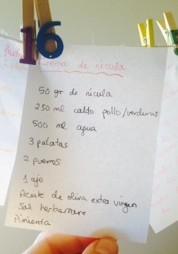 16
Crema de rúcula
50 gr de rúcula
250 ml caldo pollo/verduras
500 ml agua
3 patatas
2 puerros
1 ajo
Aceite de oliva extra virgen
Sal herbamare
Pimienta